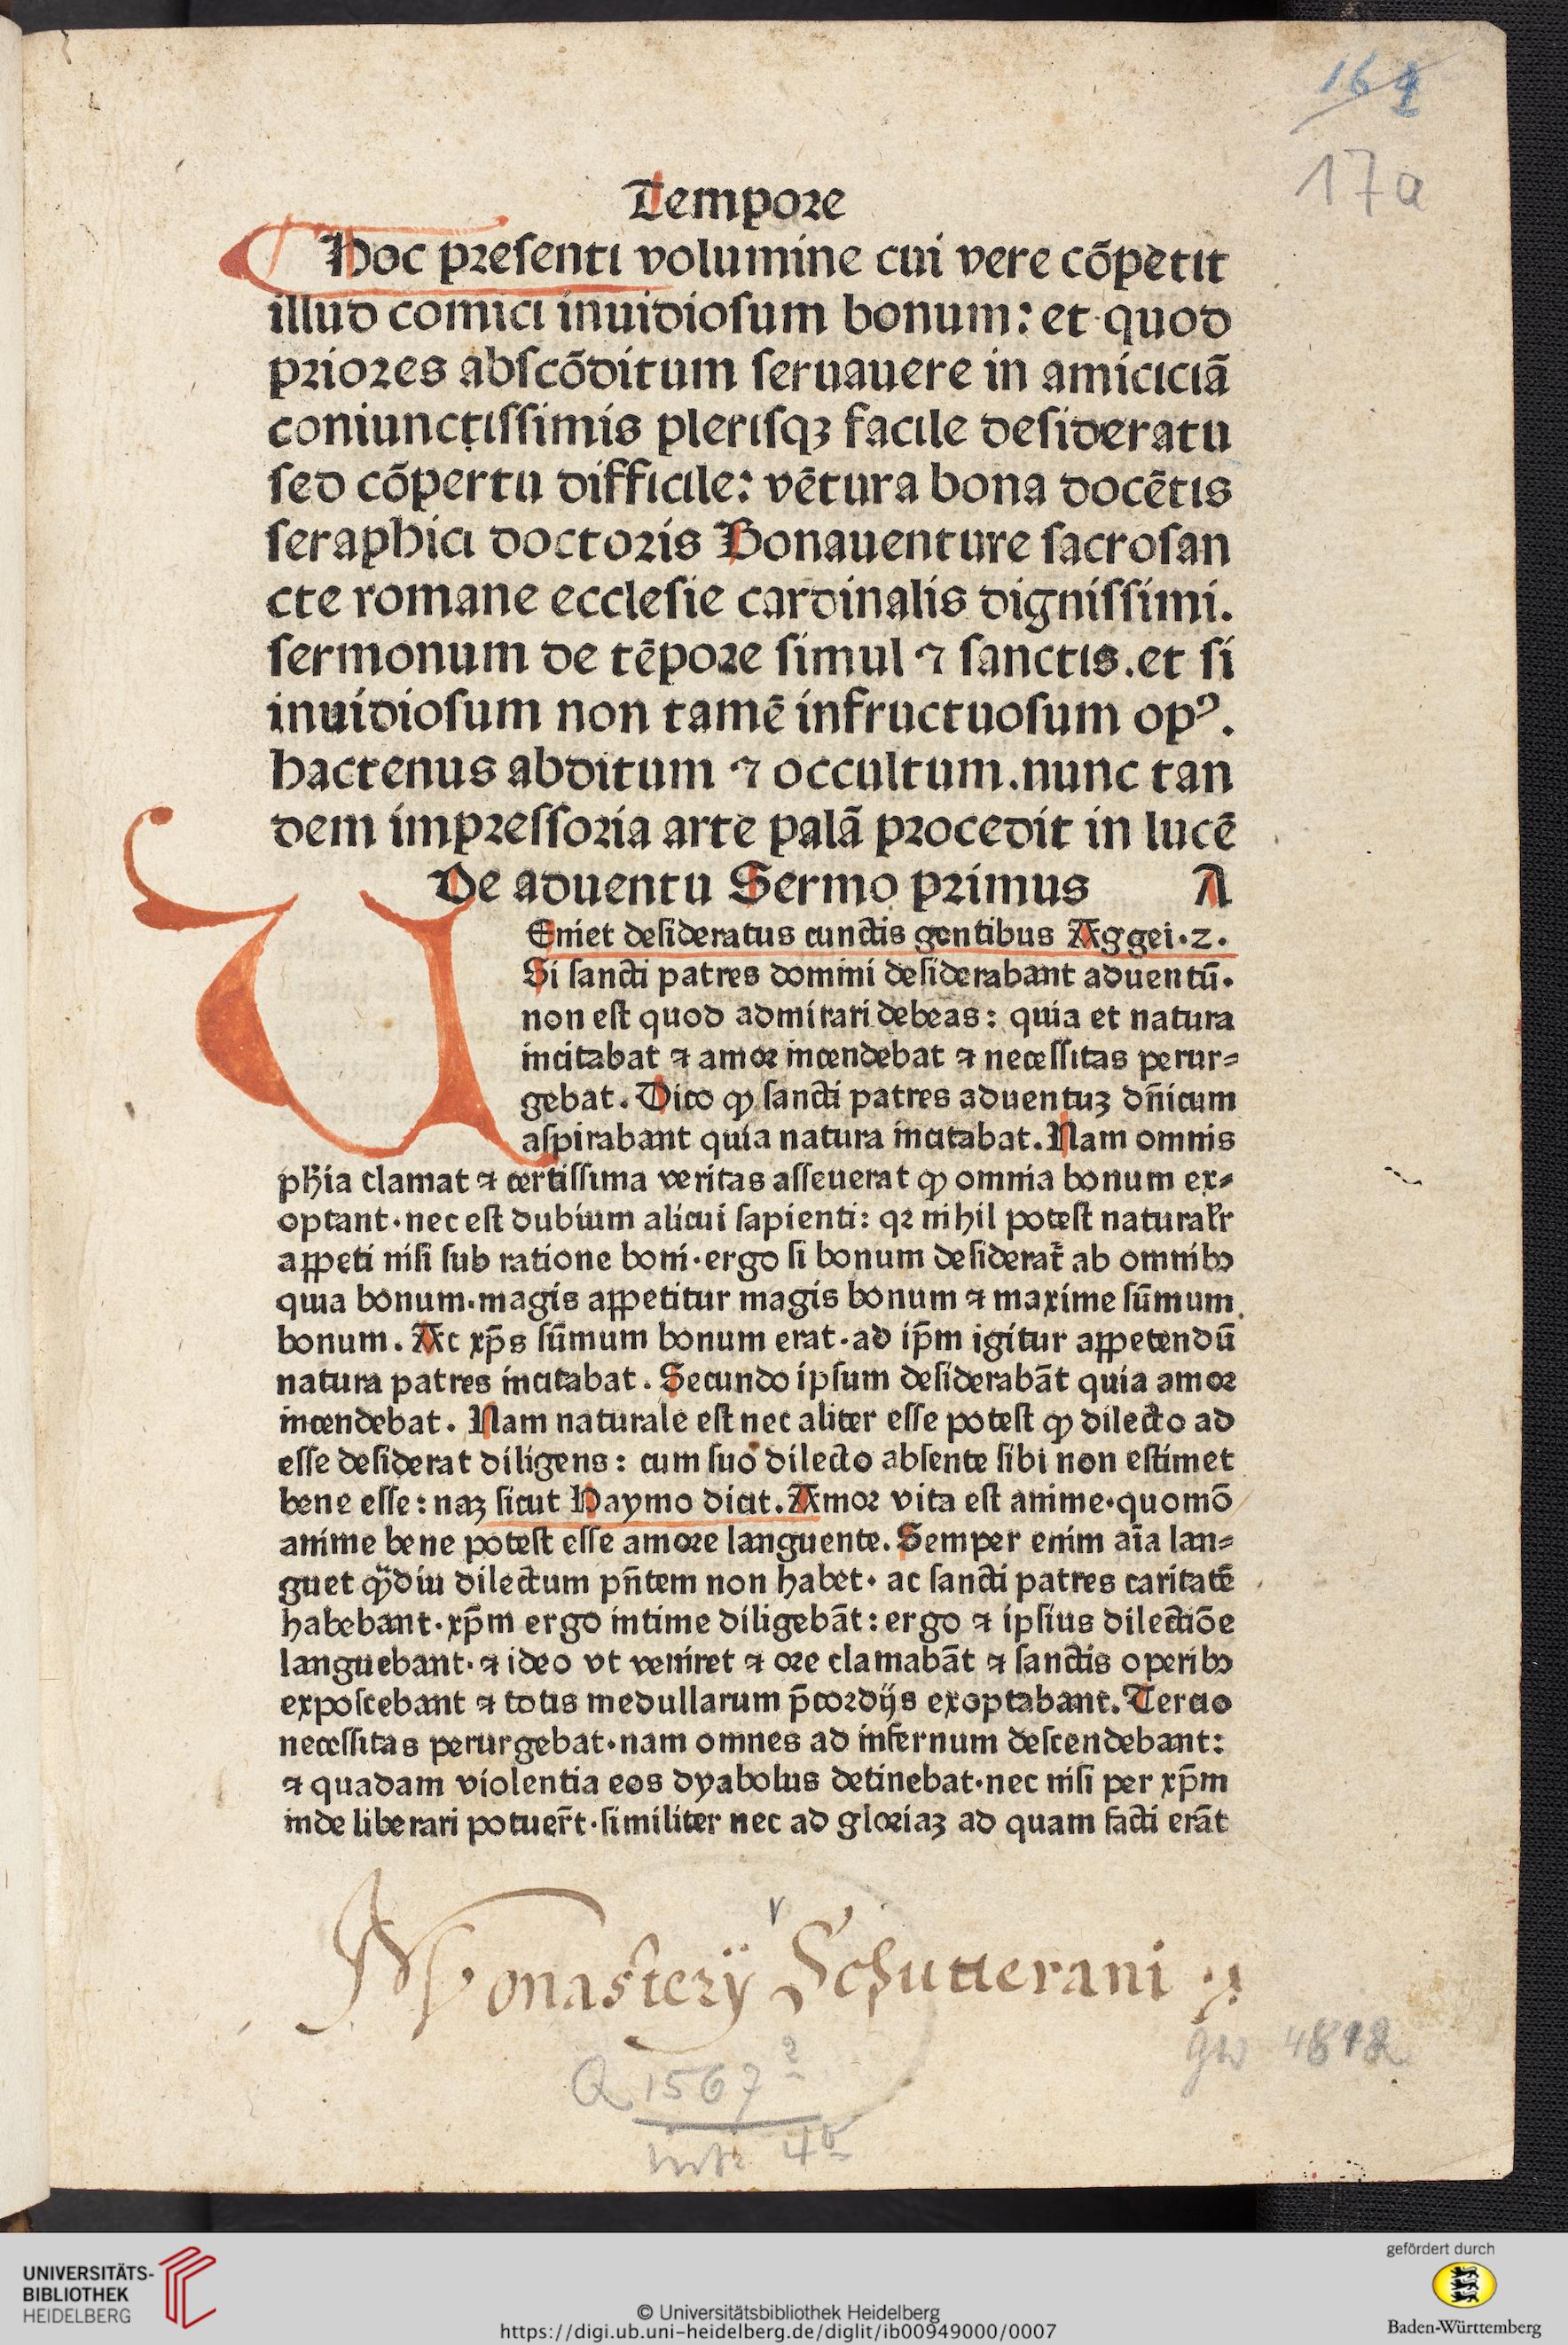 164
17a
Tempore
Hoc presenti volumine cui vere cõpetit
illud comici inuidiosum bonum: et quod
priores abscõditum seruauere in amiciciã
coniunctissimis plerisqꝫ facile desideratu
sed cõpertu difficile: vẽtura bona docẽtis
seraphici doctoris Bonauenture sacrosan
cte romane ecclesie cardinalis dignissimi.
sermonum de tẽpore simul ⁊ sanctis.et si
inuidiosum non tamẽ infructuosum opꝰ.
hactenus abditum ⁊ occultum.nunc tan
dem impressoria arte palã procedit in lucẽ
De aduentu Sermo primus A
UEniet desideratus cunctis gentibus Aggei.2.
Si sancti patres domini desiderabant aduentũ.
non est quod admirari debeas: quia et natura
incitabat ⁊ amor incendebat ⁊ necessitas perur⸗
gebat. Dico ꝙ sancti patres aduentuꝫ dñicum
aspirabant quia natura incitabat. Nam omnis
phĩa clamat ⁊ certissima veritas asseuerat ꝙ omnia bonum ex⸗
optant.nec est dubium alicui sapienti: qꝛ nihil potest naturalr̃
appeti nisi sub ratione boni.ergo si bonum desiderat̃ ab omnibꝫ
quia bonum.magis appetitur magis bonum ⁊ maxime sũmum
bonum. Ac xp̃s sũmum bonum erat.ad ip̃m igitur appetendũ
natura patres incitabat. Secundo ipsum desiderabãt quia amor
incendebat. Nam naturale est nec aliter esse potest ꝙ dilecto ad
esse desiderat diligens: cum suo dilecto absente sibi non estimet
bene esse: naꝫ sicut Haymo dicit. Amor vita est anime.quomõ
anime bene potest esse amore languente. Semper enim aĩa lan⸗
guet ꝙ̃diu dilectum pñtem non habet. ac sancti patres caritatẽ
habebant.xp̃m ergo intime diligebãt: ergo ⁊ ipsius dilectiõe
languebant.⁊ ideo vt veniret ⁊ ore clamabãt ⁊ sanctis operibꝫ
exposcebant ⁊ totis medullarum p̃cordijs exoptabant. Tercio
necessitas perurgebat.nam omnes ad infernum descendebant:
⁊ quadam violentia eos dyabolus detinebat.nec nisi per xp̃m
inde liberari potuer̃t.similiter nec ad gloriaꝫ ad quam facti erãt
Monasterÿ Schutterani
GW 4812
Q 1567²
UNIVERSITÄTS-
BIBLIOTHEK
HEIDELBERG
© Universitätsbibliothek Heidelberg
https://digi.ub.uni-heidelberg.de/diglit/ib00949000/0007
gefördert durch
Baden-Württemberg